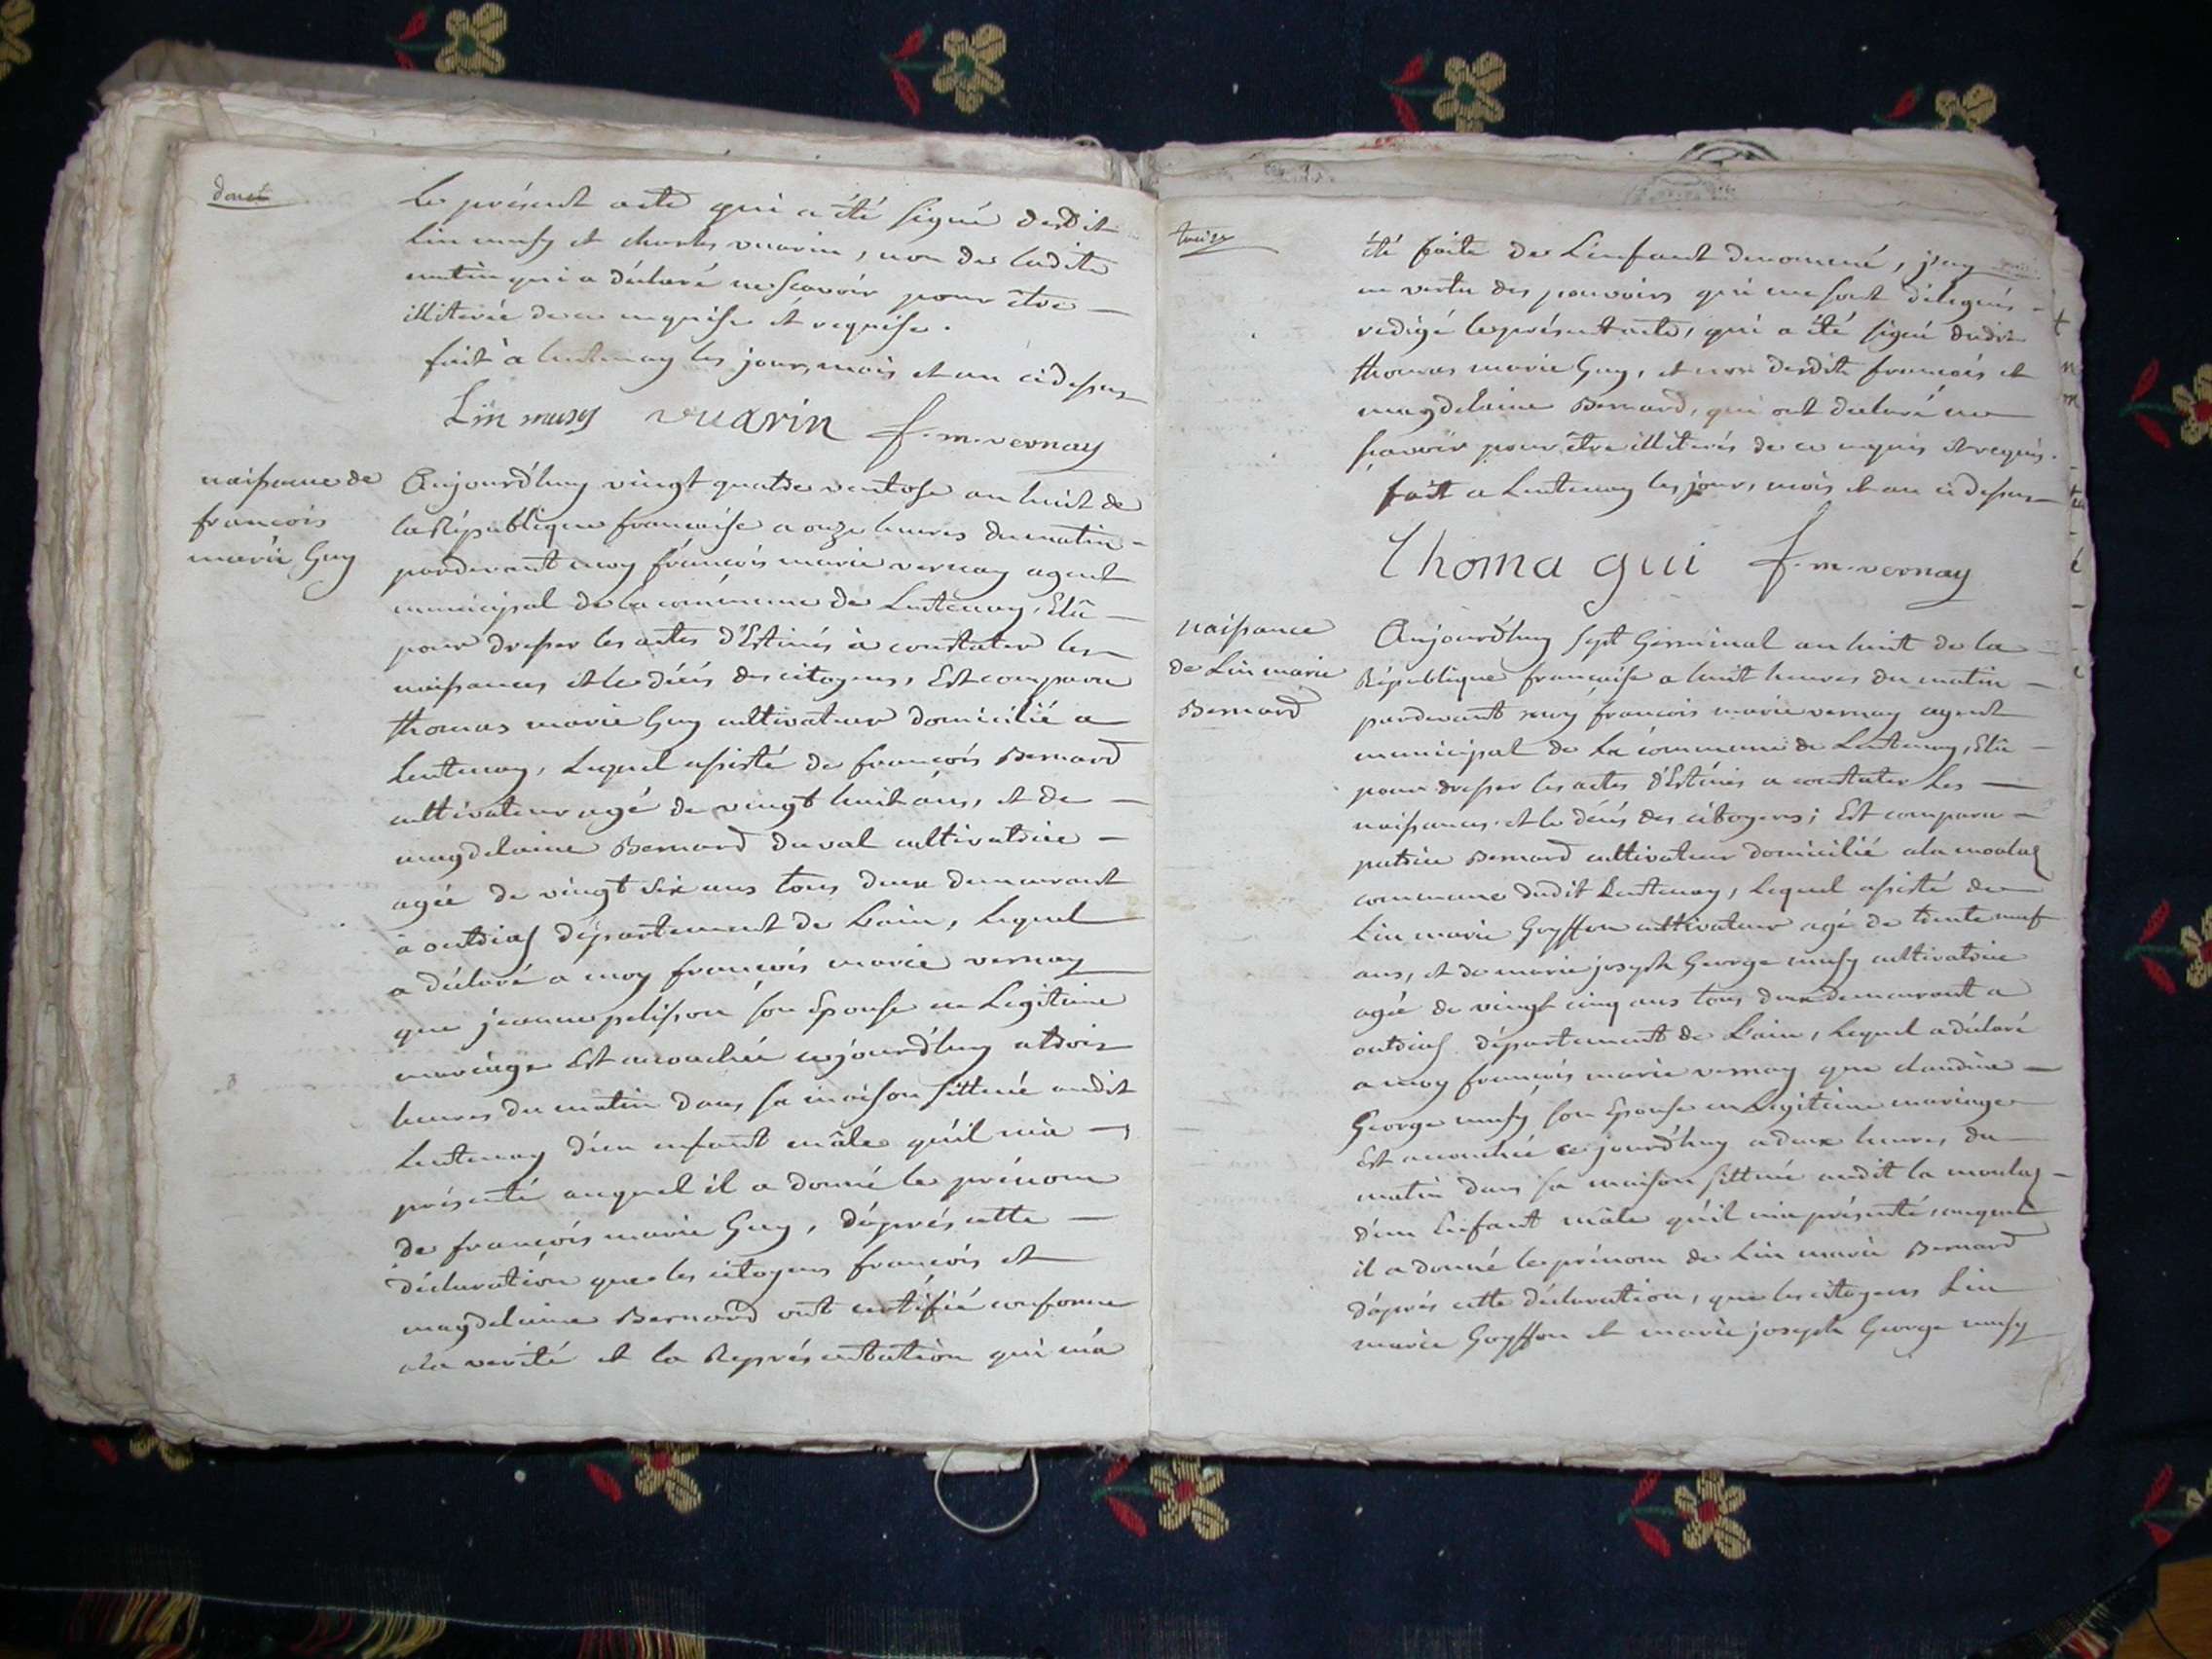 douze
Le présent acte qui a été signé desdit
Lin musy et charles vuarin, non de ladite
mutin qui a déclaré ne scavoir pour être
illiterée de ce enquise et requise.
fait a lentenay les jour, mois et an cidessus
Lin musy vuarin f. m. vernay
naissance de
francois
marie Guy
Aujourd'huy vingt quatre ventose an huit de
la République francaise a onze heures du matin
pardevant moy françois marie vernay agent
municipal de la commune de Lentenay, Elû
pour dresser les actes d'Estinés à constater les
naissances et le décès des citoyens, Est comparu
thomas marie Guy cultivateur domicilié a
Lentenay, Lequel assisté de françois Bernard
cultivateur agé de vingt huit ans, et de
magdelaine Bernard duval cultivatrice
agée de vingt six ans tous deux demeurant
à outriaf département de Lain, Lequel
a déclaré a moy françois marie vernay
que jeanne pelisson son Epouse en Legitime
mariage Est accouchée cejourd'huy a trois
heures du matin dans sa maison sittuée audit
Lentenay d'un enfant mâle qu'il m'a
présenté auquel il a donné le prénom
de françois marie Guy, d'après cette
déclaration que les citoyens françois et
magdelaine Bernard ont certifié conforme
a la verité et la Représentation qui m'a
treize
été faite de L'enfant denommé, j'ay
en vertu des pouvoirs qui me sont délegués
redigé le présent acte, qui a été signé dudit
thomas marie Guy, et non desdits francois et
magdelaine Bernard, qui ont déclaré ne
sçavoir pour être illiterés de ce enquis et requis.
fait a Lentenay les jour, mois et an ci dessus
Thoma gui f. m. vernay
naissance
de Lin marie
Bernard
Aujourd'huy sept Germinal an huit de la
République française a huit heures du matin
pardevant moy francois marie vernay agent
municipal de La commune de Lentenay, Elû
pour dresser les actes d'Estinés a constater Les
naissances et le décès des citoyens; Est comparu
patrice Bernard cultivateur domicilié a la moulaz
commune dudit Lentenay, Lequel assisté de
Lin marie Goyffon cultivateur agé de trente neuf
ans, et de marie joseph George musy cultivatrice
agée de vingt cinq ans tous deux demeurant a
outriaf département de L'ain, Lequel a déclaré
a moy françois marie vernay que claudine
George musy son Epouse en Legitime mariage
Est accouchée cejourd'huy a deux heures du
matin dans sa maison sittuée audit la moulaz
d'un Enfant mâle qu'il m'a présenté, auquel
il a donné le prénom de Lin marie Bernard
d'après cette déclaration, que les citoyens Lin
marie Goyffon et marie joseph George musy